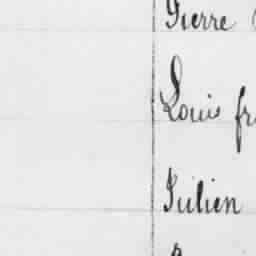 Pierre
Louis fr
Julien